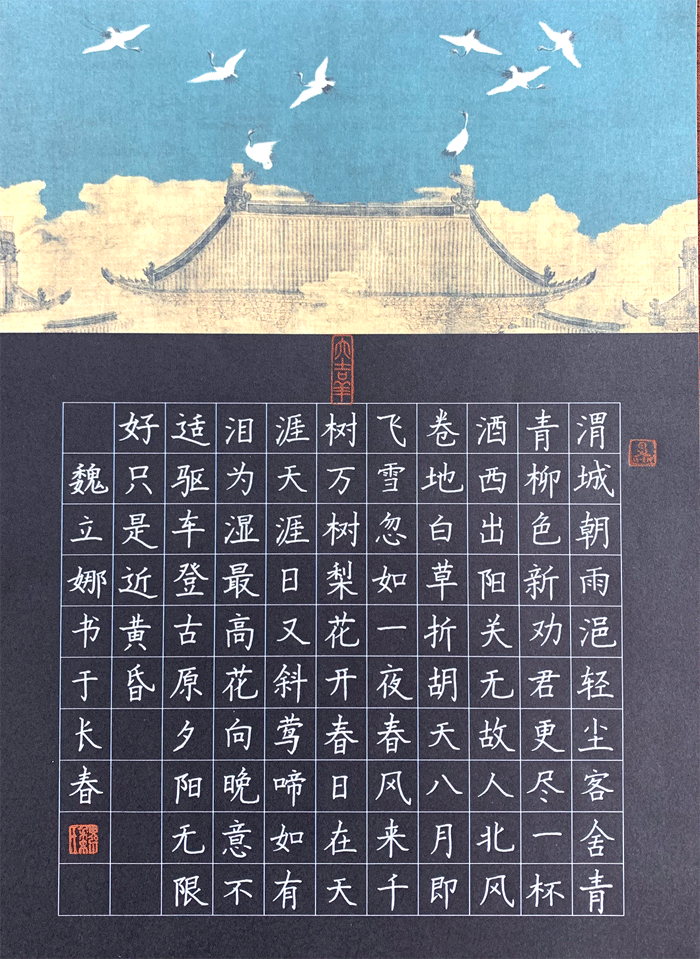 大吉羊
渭城朝雨浥轻尘客舍青
青柳色新劝君更尽一杯
酒西出阳关无故人北风
卷地白草折胡天八月即
飞雪忽如一夜春风来千
树万树梨花开春日在天
涯天涯日又斜莺啼如有
泪为湿最高花向晚意不
适驱车登古原夕阳无限
好只是近黄昏
魏立娜书于长春